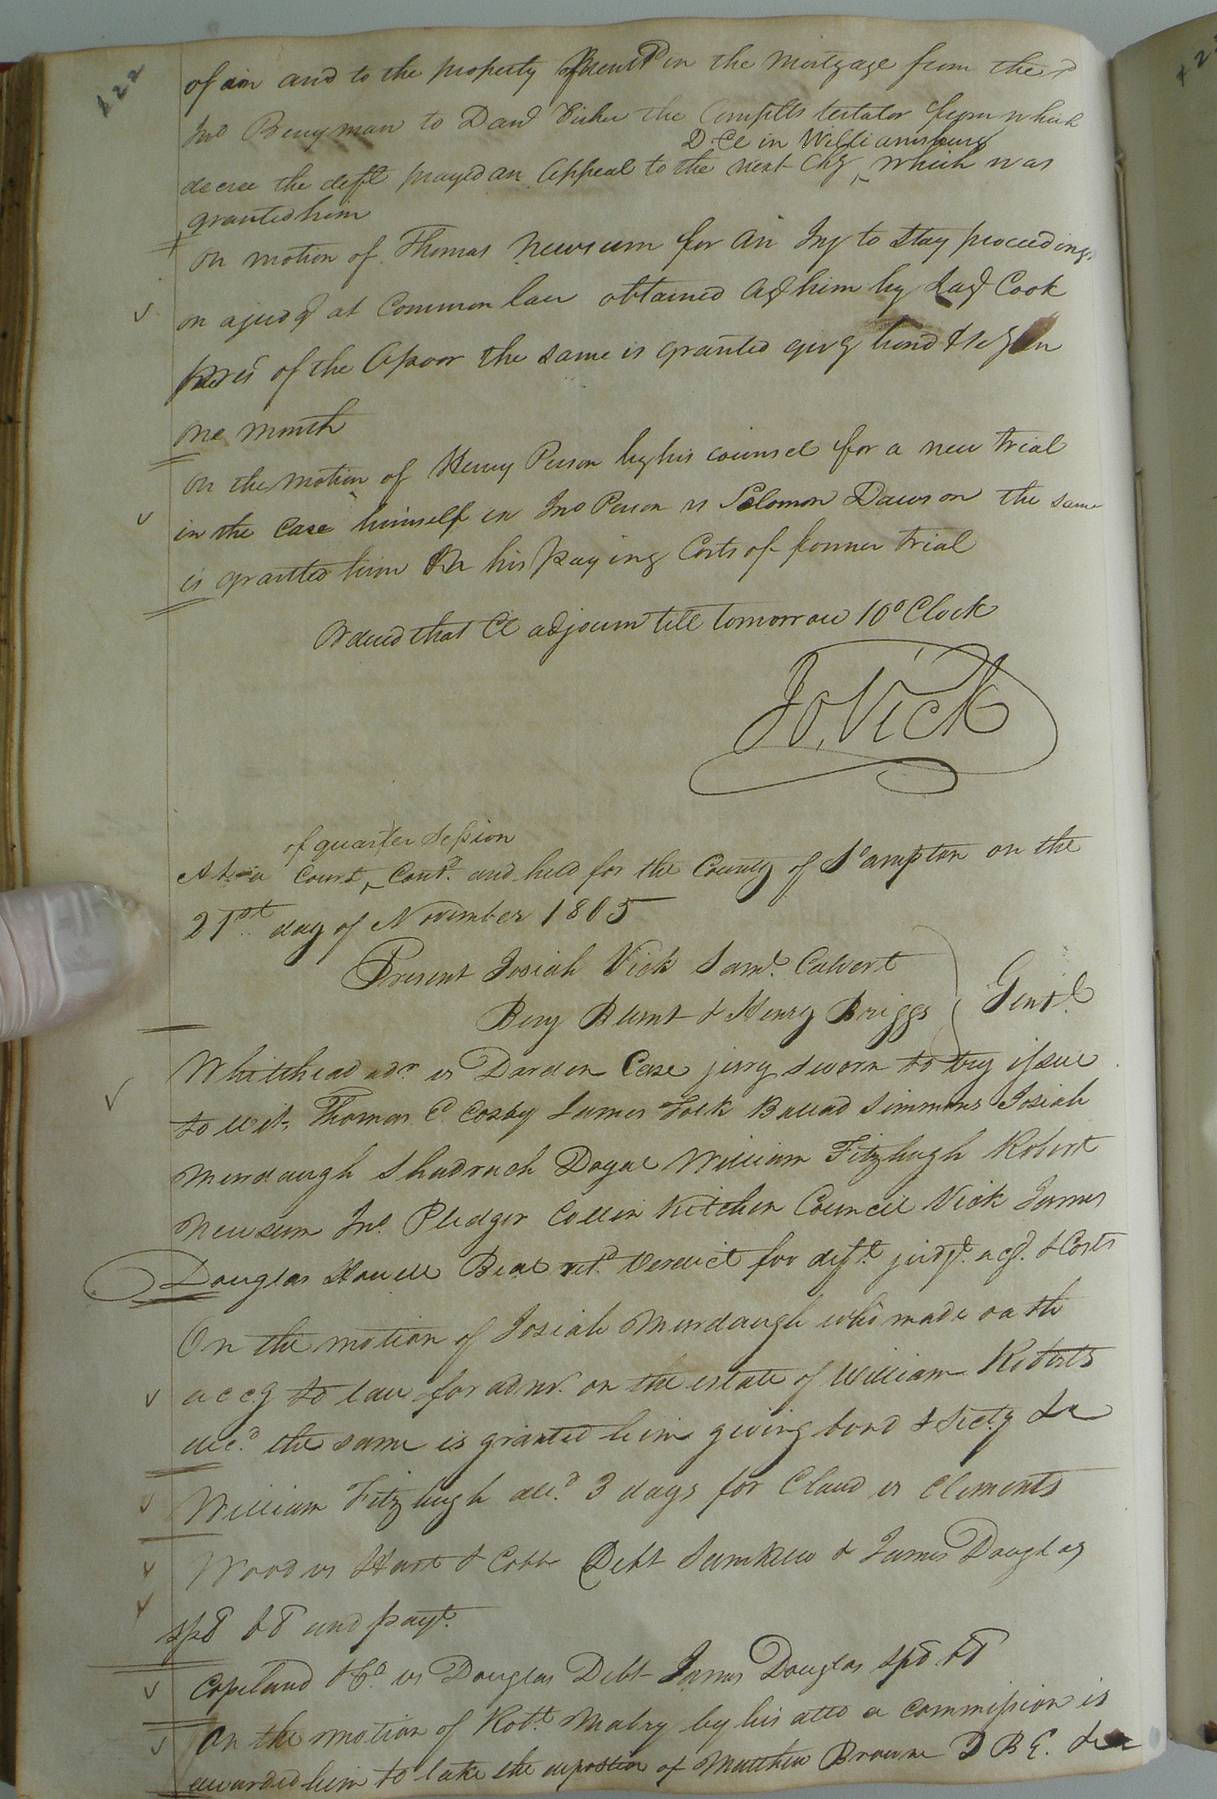 122
of in and to the property in the mortgage from the sd
Jno Berryman to Davd Fisher the Complts testator from which
D. Ct in Williamsburg
decree the deft prayed an Appeal to the next Chy ‸ which was
granted him
On motion of Thomas Newsum for an Inj to stay proceedings
on a judgt at Common law obtained agt him by Cook
of the Apoor the same is granted givg bond & in
one month
On the motion of Henry Person by his counsel for a new trial
in the Case himself Jno Person vs Solomon Dawson the same
is granted him On his paying Costs of former trial
Ordered that Ct adjourn till tomorrow 10 o Clock
Jo. Vick
of quarter Session
At a Court ‸ Contd. and held for the County of So.ampton on the
21st. day of November 1805
Present Josiah Vick Saml. Calvert
Benj Blunt & Henry Briggs } Gentl.
Whitehead adr vs Darden Case jury sworn to try issue
to wit, Thomas C. Cosby James Folk Ballad Simmons Josiah
Murdaugh Shadrach Doyal William Fitzhugh Robert
Newsum Jno. Pledger Collin Kitchen Council Vick James
Douglas Howell Beal retd. Verdict for deft. judgt. acg. & Costs
On the motion of Josiah Murdaugh who made oath
accg to law for admr. on the estate of William Roberts
decd. the same is granted him giving bond & Secty &c
William Fitzhugh alld. 3 days for Claud vs Clements
Wood vs Hart & Cobb Debt & James Douglas
spb bb and payt.
Copeland & Co. vs Douglas Debt James Douglas spb bb
On the motion of Robt. Mabry by his atto a commission is
awarded him to take the deposition of Matthew Browne D B E. &c